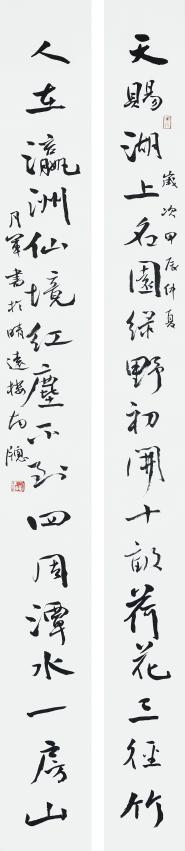 天賜湖上名園綠野初開十畝荷花三徑竹
歲次甲辰仲夏
人在瀛洲仙境紅塵不到四周潭水一房山
月軍書於晴遠樓南窗